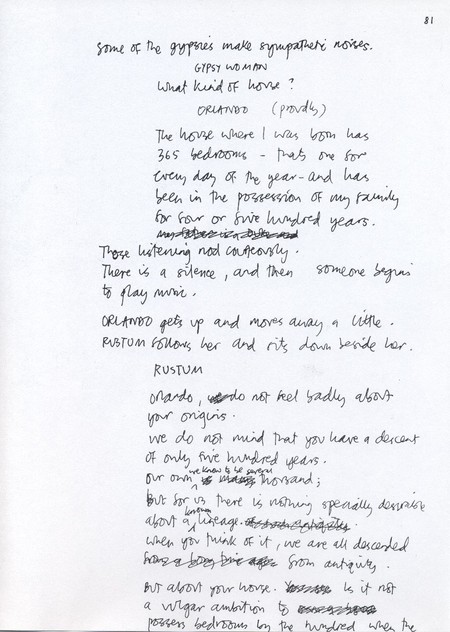 81
Some of the gypsies make sympathetic noises.
GYPSY WOMAN
What kind of house?
ORLANDO (proudly)
The house where I was born has
365 bedrooms - thats one for
every day of the year - and has
been in the possession of my family
for four or five hundred years.
Those listening nod courteously.
There is a silence, and then someone begins
to play music.
ORLANDO gets up and moves away a little.
RUSTUM follows her and sits down beside her.
RUSTUM
Orlando, do not feel badly about
your origins.
We do not mind that you have a descent
of only five hundred years.
Our own we know to be several thousand;
But for us there is nothing specially desirable
about a known lineage.
When you think of it, we are all descended
from antiquity.
But about your house. Is it not
a vulgar ambition to
possess bedrooms by the hundred when the